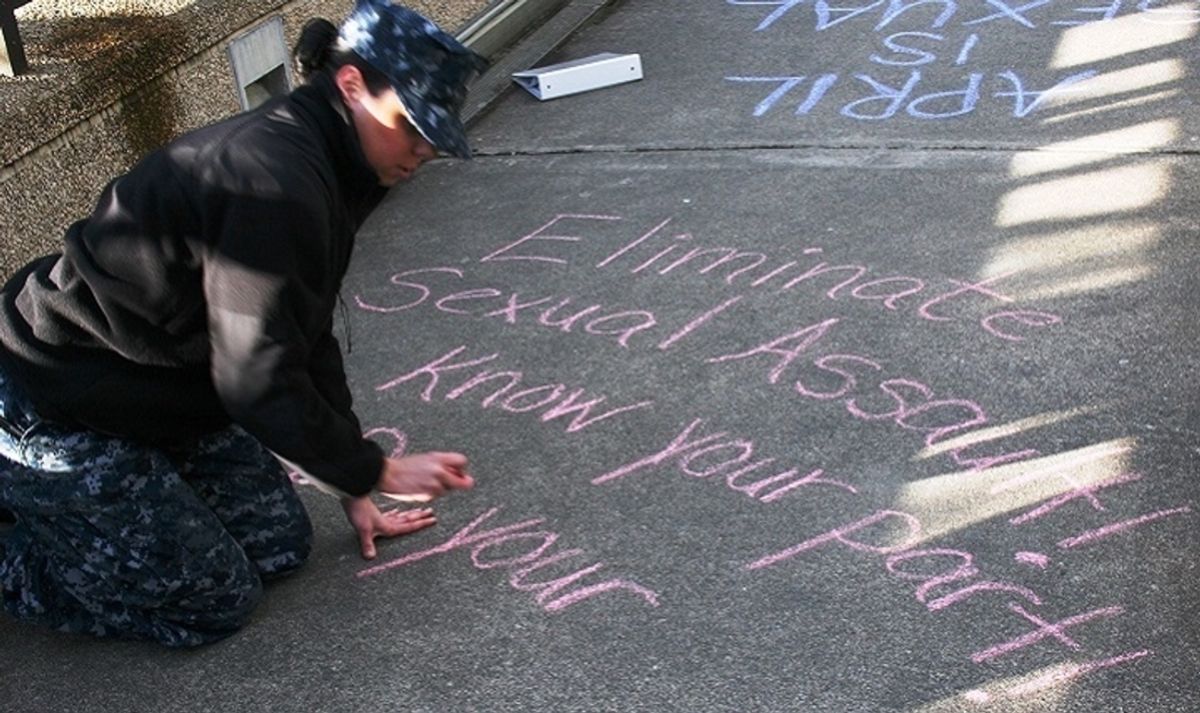 APRIL
IS
SEXUAL
Eliminate
Sexual Assault!
Know your part!
your